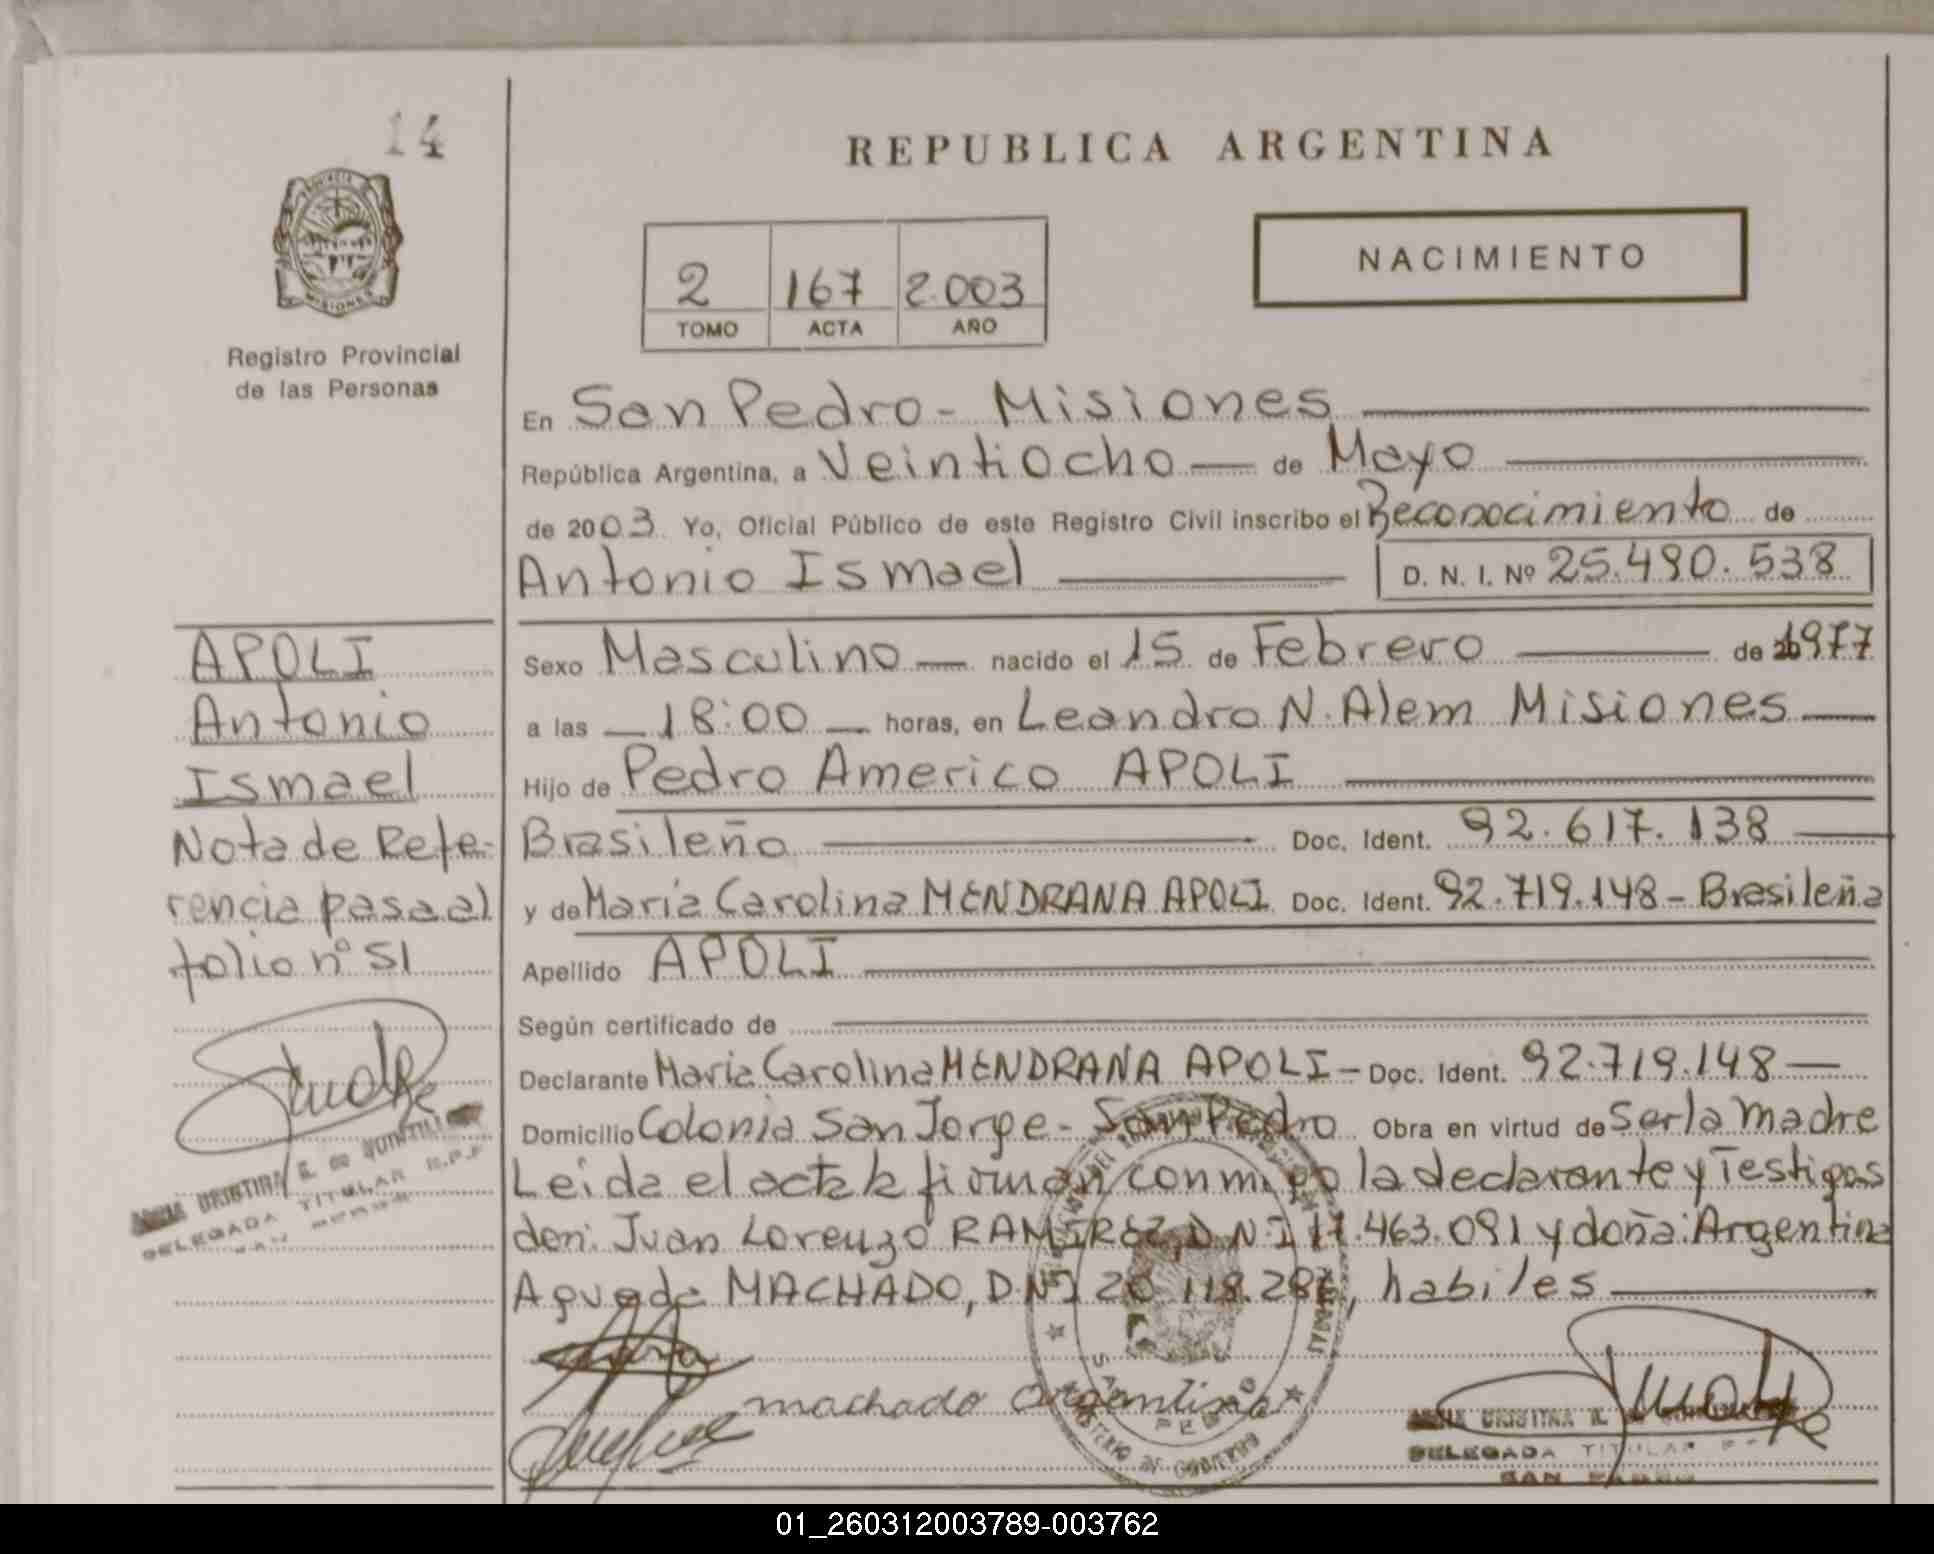 14
REPUBLICA ARGENTINA
PROVINCIA DE
MISIONES
Registro Provincial
de las Personas
NACIMIENTO
2 167 2.003
TOMO ACTA AÑO
En San Pedro - Misiones
República Argentina, a Veintiocho de Mayo
de 2003 Yo, Oficial Público de este Registro Civil inscribo el Reconocimiento de
Antonio Ismael D. N. I. Nº 25.490.538
APOLI
Antonio
Ismael
Nota de Refe-
rencia pasa al
folio nº 51
Sexo Masculino nacido el 15 de Febrero de 1977
a las 18:00 horas, en Leandro N. Alem Misiones
Hijo de Pedro Americo APOLI
Brasileño Doc. Ident. 92.617.138
y de María Carolina MENDRANA APOLI Doc. Ident. 92.719.148 - Brasileña
Apellido APOLI
Según certificado de
Declarante María Carolina MENDRANA APOLI - Doc. Ident. 92.719.148
Domicilio Colonia San Jorge - San Pedro Obra en virtud de Ser la madre
Leída el acta la firman conmigo la declarante y Testigos
don: Juan Lorenzo RAMIREZ, D.N.I 17.463.091 y doña: Argentina
Agueda MACHADO, D.N.I 20.118.287, habiles
machado argentina
CRISTINA
DELEGADA TITULAR R.P.P
SAN PEDRO
MINISTERIO DE GOBIERNO
SAN PEDRO
CRISTINA
DELEGADA TITULAR
SAN PEDRO
01_260312003789-003762